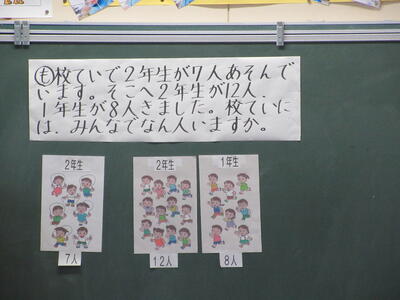 も校ていで2年生が7人あそんで
います。そこへ2年生が12人、
1年生が8人きました。校ていに
は、みんなでなん人いますか。
2年生
7人
2年生
12人
1年生
8人